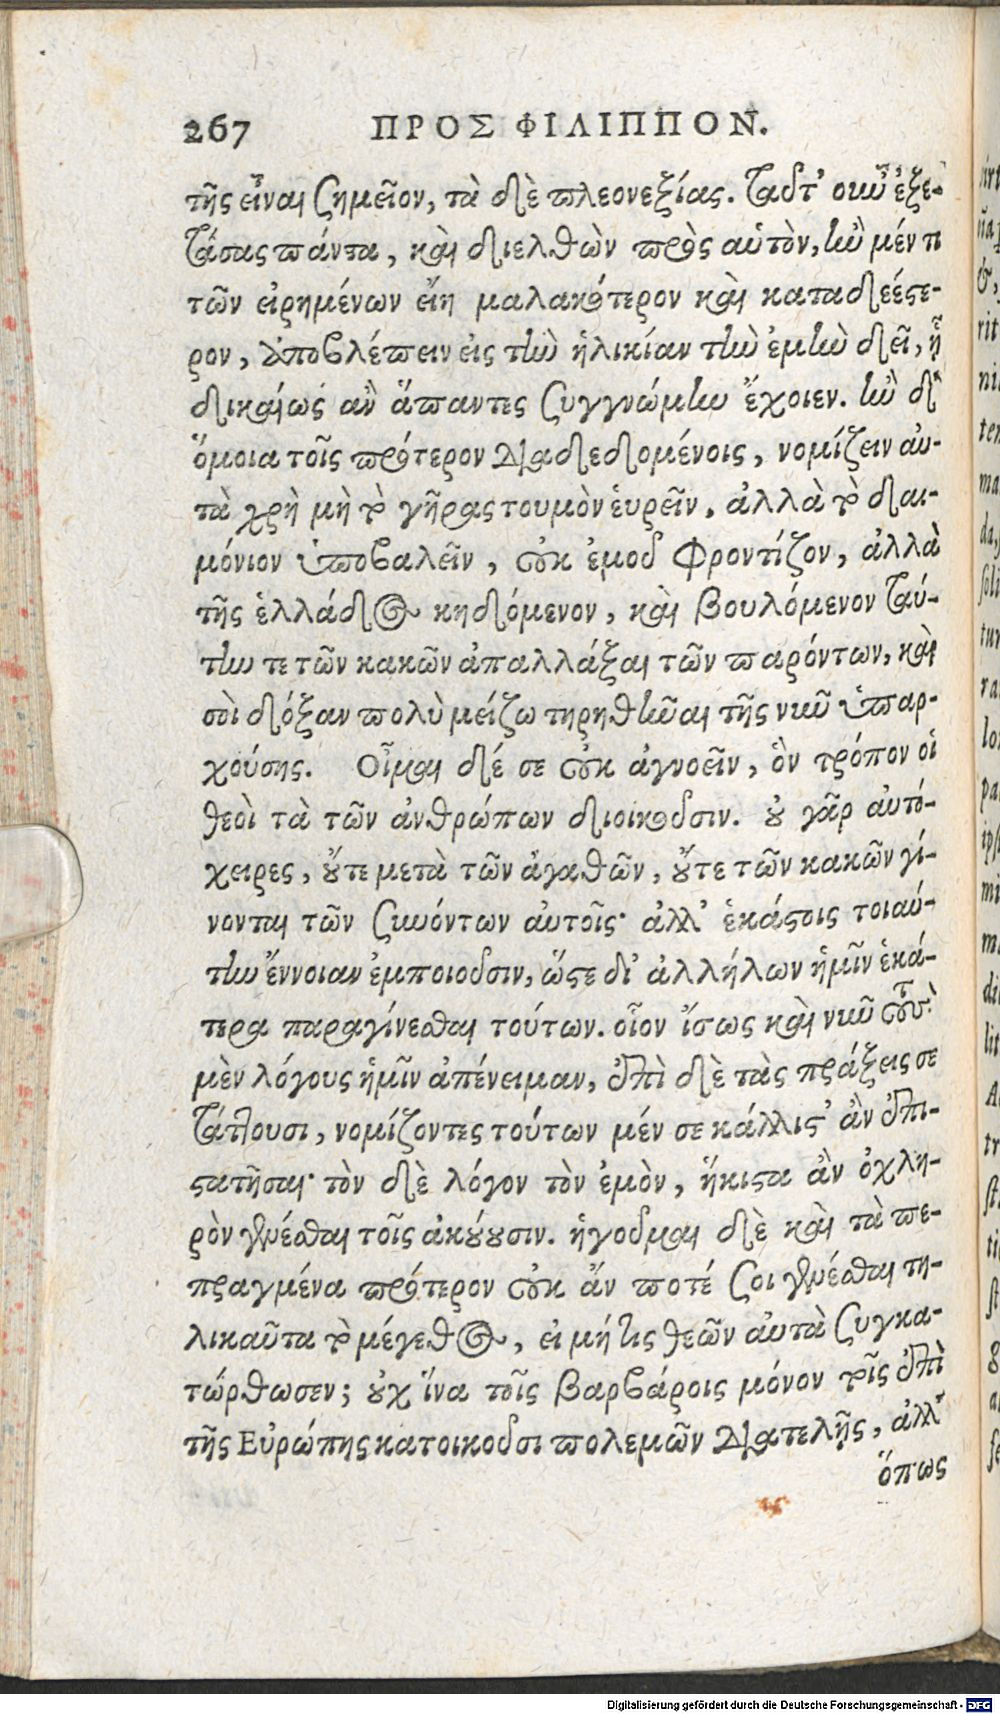 267 ΠΡΟΣ ΦΙΛΙΠΠΟΝ.
τῆς εἶναι σημεῖον, τὰ δὲ πλεονεξίας. ταῦτ' οὖν ἐξε-
τάσας πάντα, καὶ διελθὼν πρὸς αὑτὸν, ἢν μέν τι
τῶν εἰρημένων εἴη μαλακότερον καὶ καταδεέστε-
ρον, ὑποβλέπειν εἰς τὴν ἡλικίαν τὴν ἐμὴν δεῖ, ᾗ
δικαίως ἂν ἅπαντες συγγνώμην ἔχοιεν. ἢν δ'
ὅμοια τοῖς πρότερον διαδεδομένοις, νομίζειν αὐ-
τὰ χρὴ μὴ τὸ γῆρας τουμὸν εὑρεῖν, ἀλλὰ τὸ δαι-
μόνιον ὑποβαλεῖν, οὐκ ἐμοῦ φροντίζον, ἀλλὰ
τῆς ἑλλάδος κηδόμενον, καὶ βουλόμενον ταύ-
την τε τῶν κακῶν ἀπαλλάξαι τῶν παρόντων, καὶ
σοὶ δόξαν πολὺ μείζω τηρηθῆναι τῆς νῦν ὑπαρ-
χούσης. Οἶμαι δέ σε οὐκ ἀγνοεῖν, ὃν τρόπον οἱ
θεοὶ τὰ τῶν ἀνθρώπων διοικοῦσιν. οὐ γὰρ αὐτό-
χειρες, οὔτε μετὰ τῶν ἀγαθῶν, οὔτε τῶν κακῶν γί-
νονται τῶν συνόντων αὐτοῖς· ἀλλ' ἑκάστοις τοιαύ-
την ἔννοιαν ἐμποιοῦσιν, ὥστε δι' ἀλλήλων ἡμῖν ἑκά-
τερα παραγίνεσθαι τούτων. οἷον ἴσως καὶ νῦν τοὺς
μὲν λόγους ἡμῖν ἀπένειμαν, ἐπὶ δὲ τὰς πράξεις σε
τάττουσι, νομίζοντες τούτων μέν σε κάλλιστ' ἂν ἐπι-
στατῆσαι· τὸν δὲ λόγον τὸν ἐμὸν, ἥκιστα ἂν ὀχλη-
ρὸν γενέσθαι τοῖς ἀκούουσιν. ἡγοῦμαι δὲ καὶ τὰ πε-
πραγμένα πρότερον οὐκ ἄν ποτέ σοι γενέσθαι τη-
λικαῦτα τὸ μέγεθος, εἰ μή τις θεῶν αὐτὰ συγκα-
τώρθωσεν; οὐχ ἵνα τοῖς βαρβάροις μόνον τοῖς ἐπὶ
τῆς Εὐρώπης κατοικοῦσι πολεμῶν διατελῇς, ἀλλ'
ὅπως
Digitalisierung gefördert durch die Deutsche Forschungsgemeinschaft - DFG